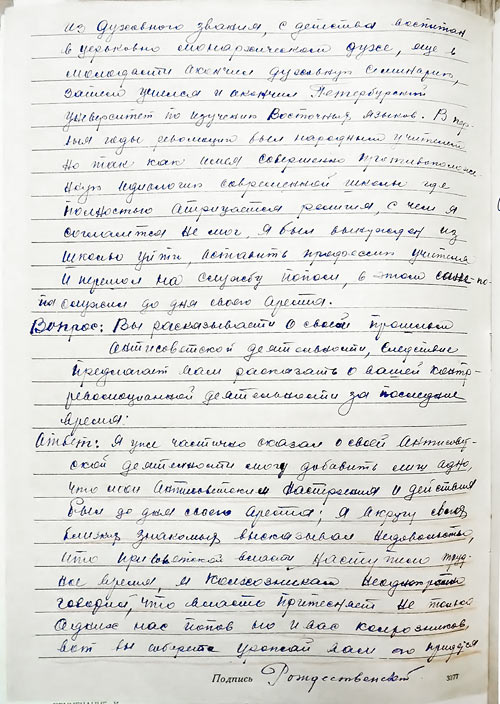 из духовного звания, с детства воспитан
в церковно монархическом духе, еще в
молодости окончил духовную семинарию,
затем учился и окончил Петербурский
университет по изучению Восточных языков. В пер-
вые годы революции был народным учителем
но так как имея совершенно противополож-
ную идиологию современной школы где
полностью отрицается религия, с чем я
согласится не мог. Я был вынужден из
школы уйти, оставить профессию учителя
и перешол на службу попом, в этом сане по-
па служил до дня своего ареста.
Вопрос: Вы рассказывасти о своей прошлой
антисоветской деятельности, следствие
предлогает вам рассказать о вашей контр-
революционной деятельности за последние
время:
Ответ: Я уже частично сказал о своей антисовет-
ской деятелности могу добавить лиш одно,
что мои антисоветскии настроения и действия
были до дня своего ареста, я в кругу своих
близких знакомых высказывал недовольство,
что при советской власти наступило труд-
ное время, и колхозникам неоднократно
говорил, что власть притесняет не только
одних нас попов но и вас колхозников,
вот вы соберете урожай вам его придется
Подпись Рождественский 3277